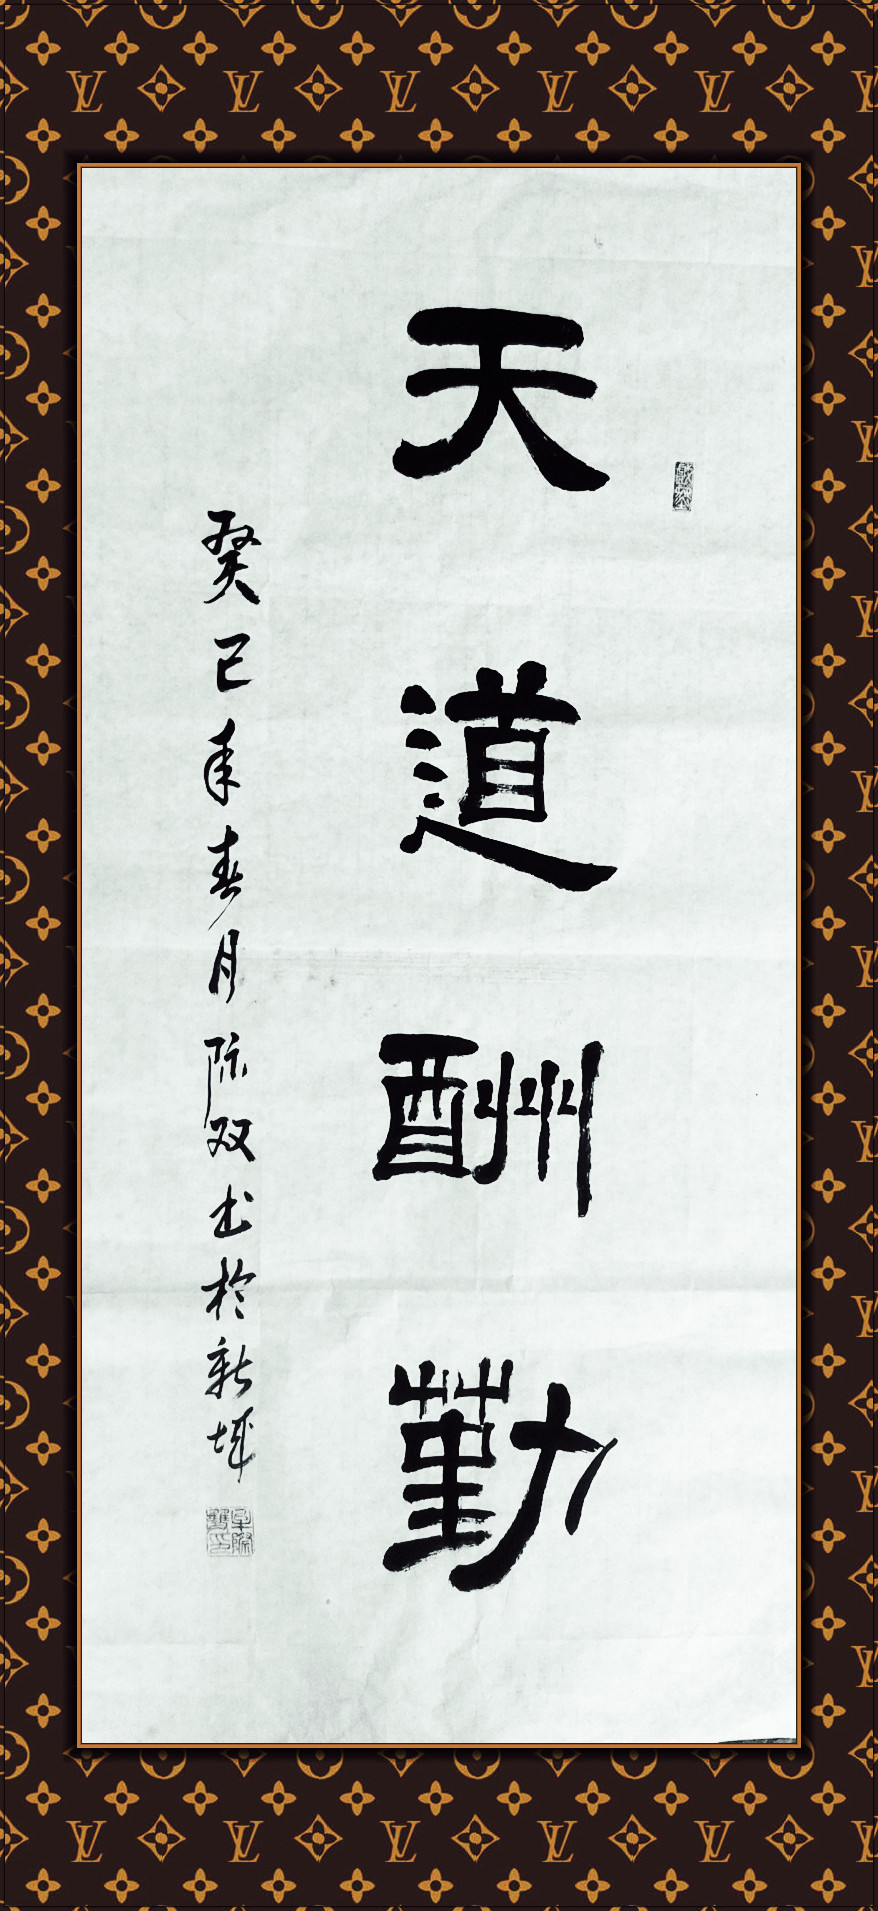 天道酬勤
癸巳年春月陈双书於新城